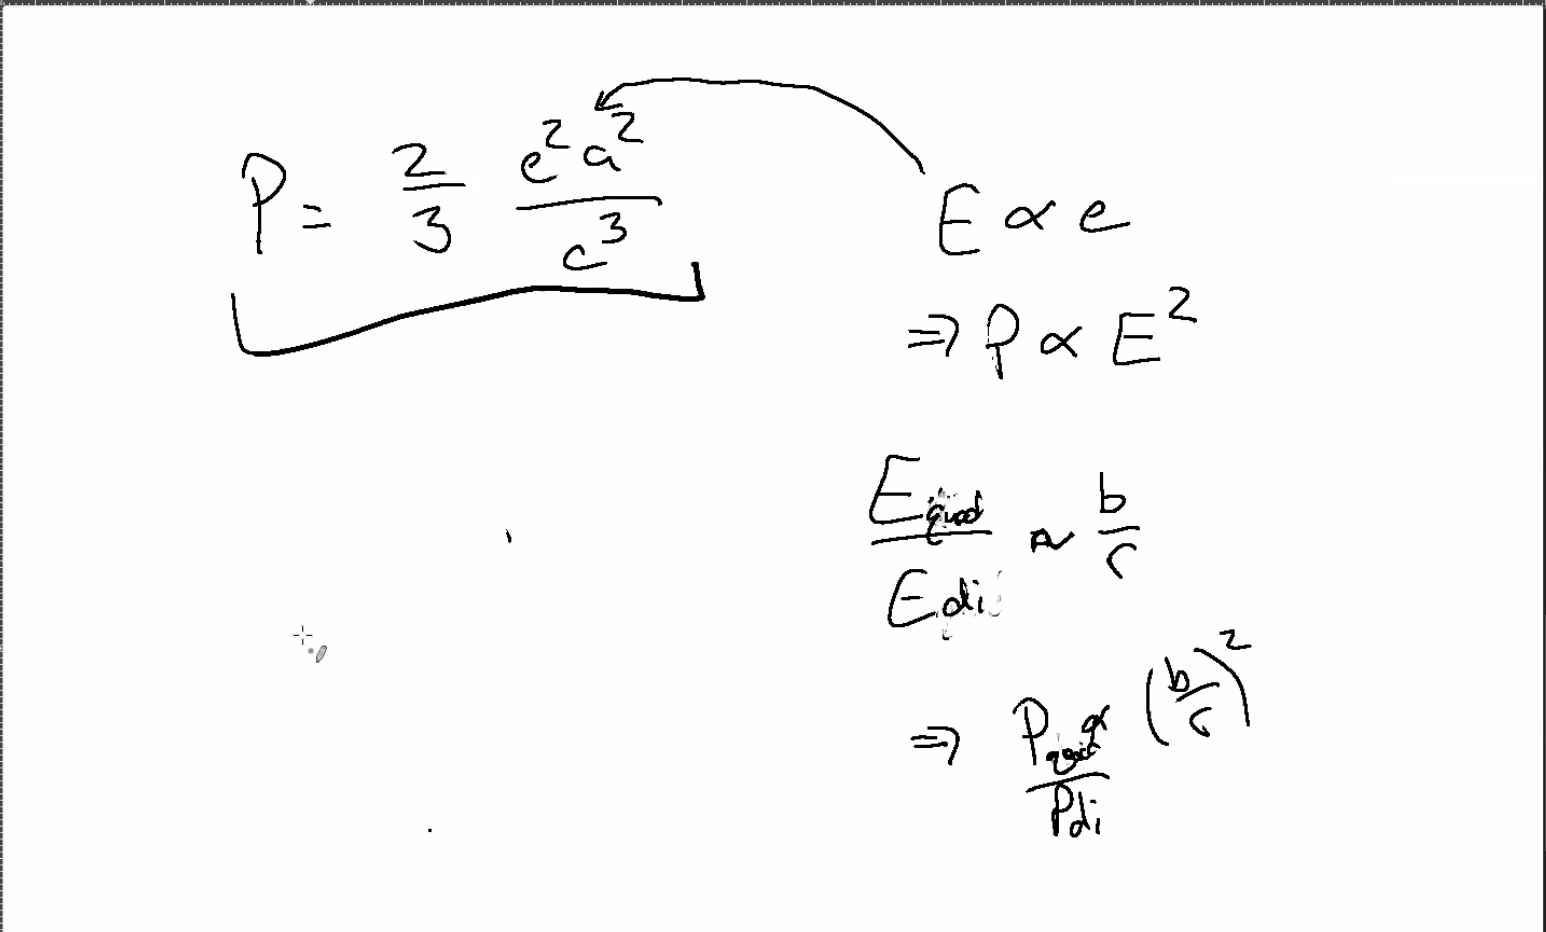 P = 2/3 e²a²/c³
E ∝ e
⇒ P ∝ E²
E quad / E di ~ b/r
⇒ P quad / P di ∝ (b/r)²